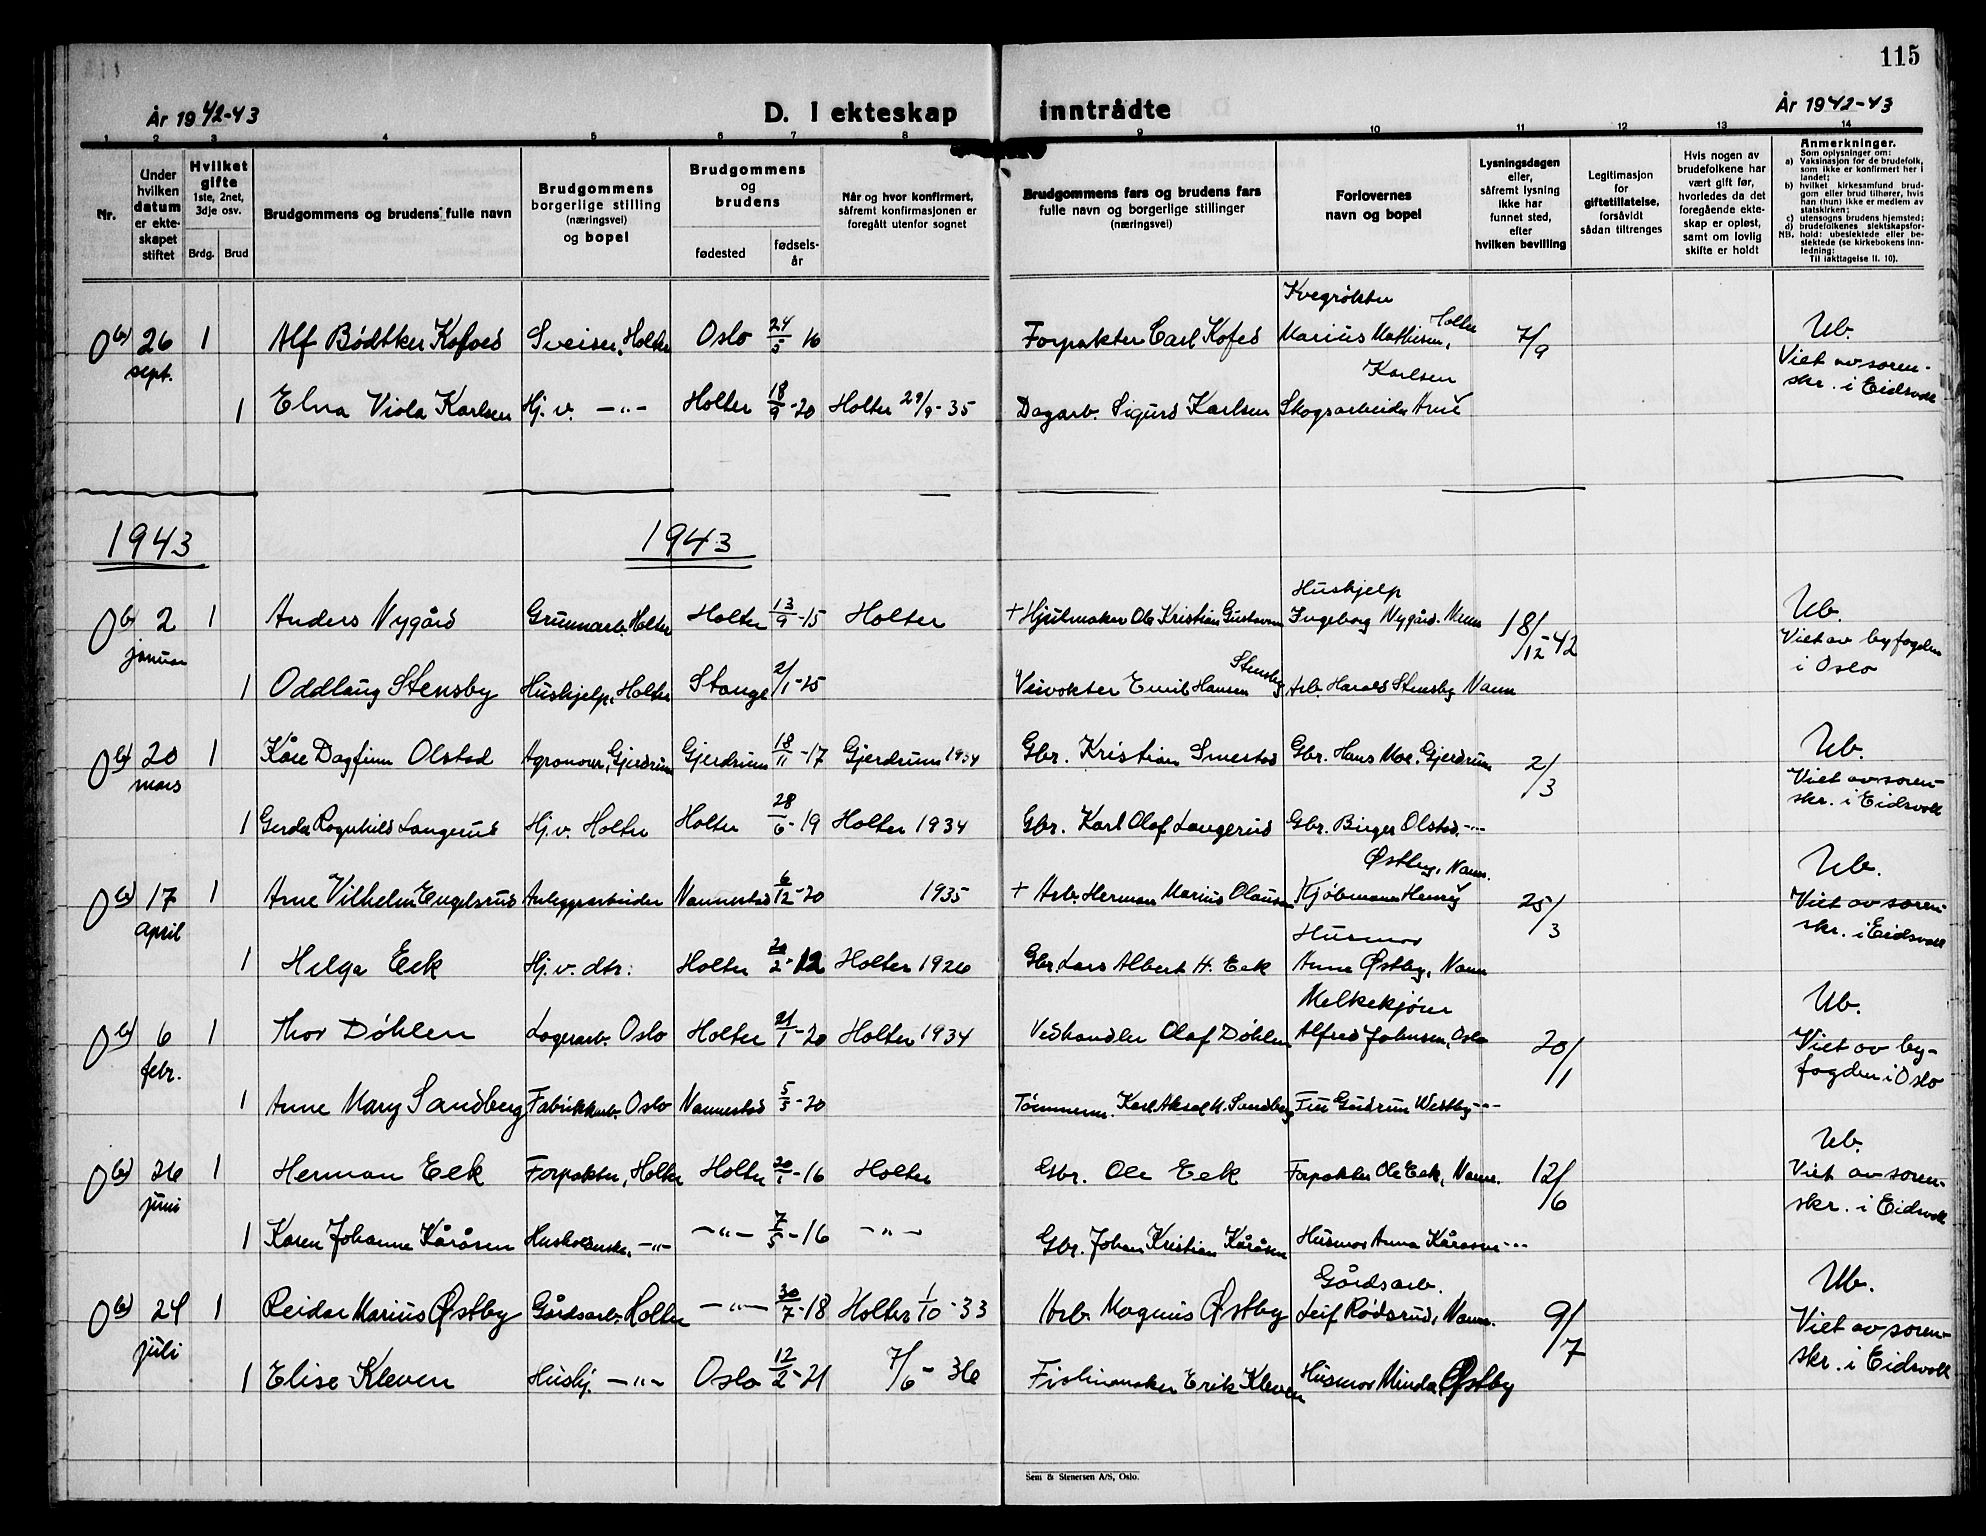 115
År 1942-43
D. I ekteskap inntrådte
År 1942-43
1 2 3 4 5 6 7 8 9 10 11 12 13 14
Nr.
Under hvilken datum er ekte- skapet stiftet
Hvilket gifte 1ste, 2net, 3dje osv.
Brdg. Brud
Brudgommens og brudens fulle navn
Brudgommens borgerlige stilling (næringsvei) og bopel
Brudgommens og brudens
fødested
fødsels- år
Når og hvor konfirmert, såfremt konfirmasjonen er foregått utenfor sognet
Brudgommens fars og brudens fars fulle navn og borgerlige stillinger (næringsvei)
Forlovernes navn og bopel
Lysningsdagen eller, såfremt lysning ikke har funnet sted, efter hvilken bevilling
Legitimasjon for giftetillatelse, forsåvidt sådan tiltrenges
Hvis nogen av brudefolkene har vært gift før, hvorledes da det foregående ekte- skap er opløst, samt om lovlig skifte er holdt
Anmerkninger.
Som oplysninger om:
a) Vaksinasjon for de brudefolk, som ikke er konfirmert her i landet;
b) hvilket kirkesamfund brud- gom eller brud tilhører, hvis han (hun) ikke er medlem av statskirken;
c) utensogns brudens hjemsted;
d) brudefolkenes slektskapsfor-
NB. hold: ubeslektede eller be- slektede (se kirkebokens inn- ledning:
Til iakttagelse II. 10).
Kvegrøkter
0 b) 26 1 Alf Bødtker Kofoed Sveiser, Holter Oslo 24/5 16 Forpakter Carl Kofod Marius Mathisen, Holter 7/9 Ub.
sept. Viet av soren-
skr. i Eidsvoll
Karlsen
1 Elna Viola Karlsen Hj.v. -"- Holter 18/9-20 Holter 29/9-35 Dagarb. Sigurd Karlsen Skogsarbeider Arne
1943 1943
Hushjelp
0 b) 2 1 Anders Nygård Grunnarb. Holter Holter 13/9-15 Holter + Hjulmaker Ole Kristian Gustavsen Ingeborg Nygård. Nann 18/12-42 Ub.
januar Viet av byfogden
i Oslo
1 Oddlaug Stensby Hushjelp, Holter Stange 2/1-25 Veivokter Emil Hansen Stensby Arb. Harald Stensby Nann
0 b) 20 1 Kåre Dagfinn Olstad Agronom, Gjerdrum Gjerdrum 18/11-17 Gjerdrum 1934 Gbr. Kristian Smestad Gbr. Hans Mor. Gjerdrum 2/3 Ub.
mars Viet av soren-
skr. i Eidsvoll
1 Gerda Ragnhild Langerud Hj.v. Holter Holter 28/6-19 Holter 1934 Gbr. Karl Olaf Langerud Gbr. Birger Olstad -"-
Østby, Nann.
0 b) 17 1 Arne Vilhelm Engelsrud Anleggsarbeider Nannestad 6/12-20 1935 + Arb. Herman Marius Olausen Kjøbmann Henry 25/3 Ub.
april Viet av soren-
skr. i Eidsvoll
Husmor
1 Helga Eek Hj.v. dtr: Holter 20/2-12 Holter 1926 Gbr. Lars Albert H. Eek Anne Østby, Nann
Melkekjører
0 b) 6 1 Thor Døhlen Lagerarb. Oslo Holter 21/1-20 Holter 1934 Vedhandler Olaf Døhlen Alfred Johnsen, Oslo 20/1 Ub.
febr. Viet av by-
fogden i Oslo
1 Anne Mary Sandberg Fabrikkarb. Oslo Nannestad 5/5-20 Tømmerm. Karl Aksel M. Sandberg Fru Gudrun Westby -"-
0 b) 26 1 Herman Eek Forpakter, Holter Holter 20/1-16 Holter Gbr. Ole Eek Forpakter Ole Eek, Nann. 12/6 Ub.
juni Viet av soren-
skr. i Eidsvoll
1 Karen Johanne Kåråsen -"- -"- 7/5-16 -"- Gbr. Johan Kristian Kåråsen Husmor Anna Kåråsen -"-
Gårdsarb.
0 b) 24 1 Reidar Marius Østby Gårdsarb. Holter -"- 30/7-18 Holter 1/10-33 Arb. Magnus Østby Leif Rødsrud, Nann. 9/7 Ub.
juli Viet av soren-
skr. i Eidsvoll
1 Elise Kleven Hushj. -"- Oslo 12/2-21 7/6-36 Erik Kleven Husmor Minda Østby
Sem & Stenersen A/S, Oslo.